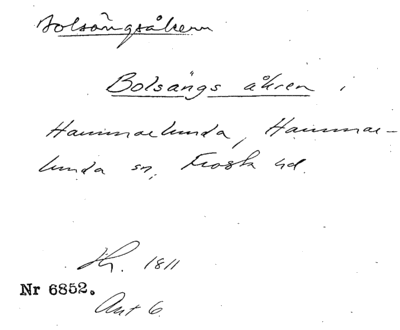 Bolsängsåkern
Bolsängs åkren i
Hammarlunda, Hammar-
lunda sn, Frosta hd.
Hy. 1811
Nr 6852.
Akt 6.